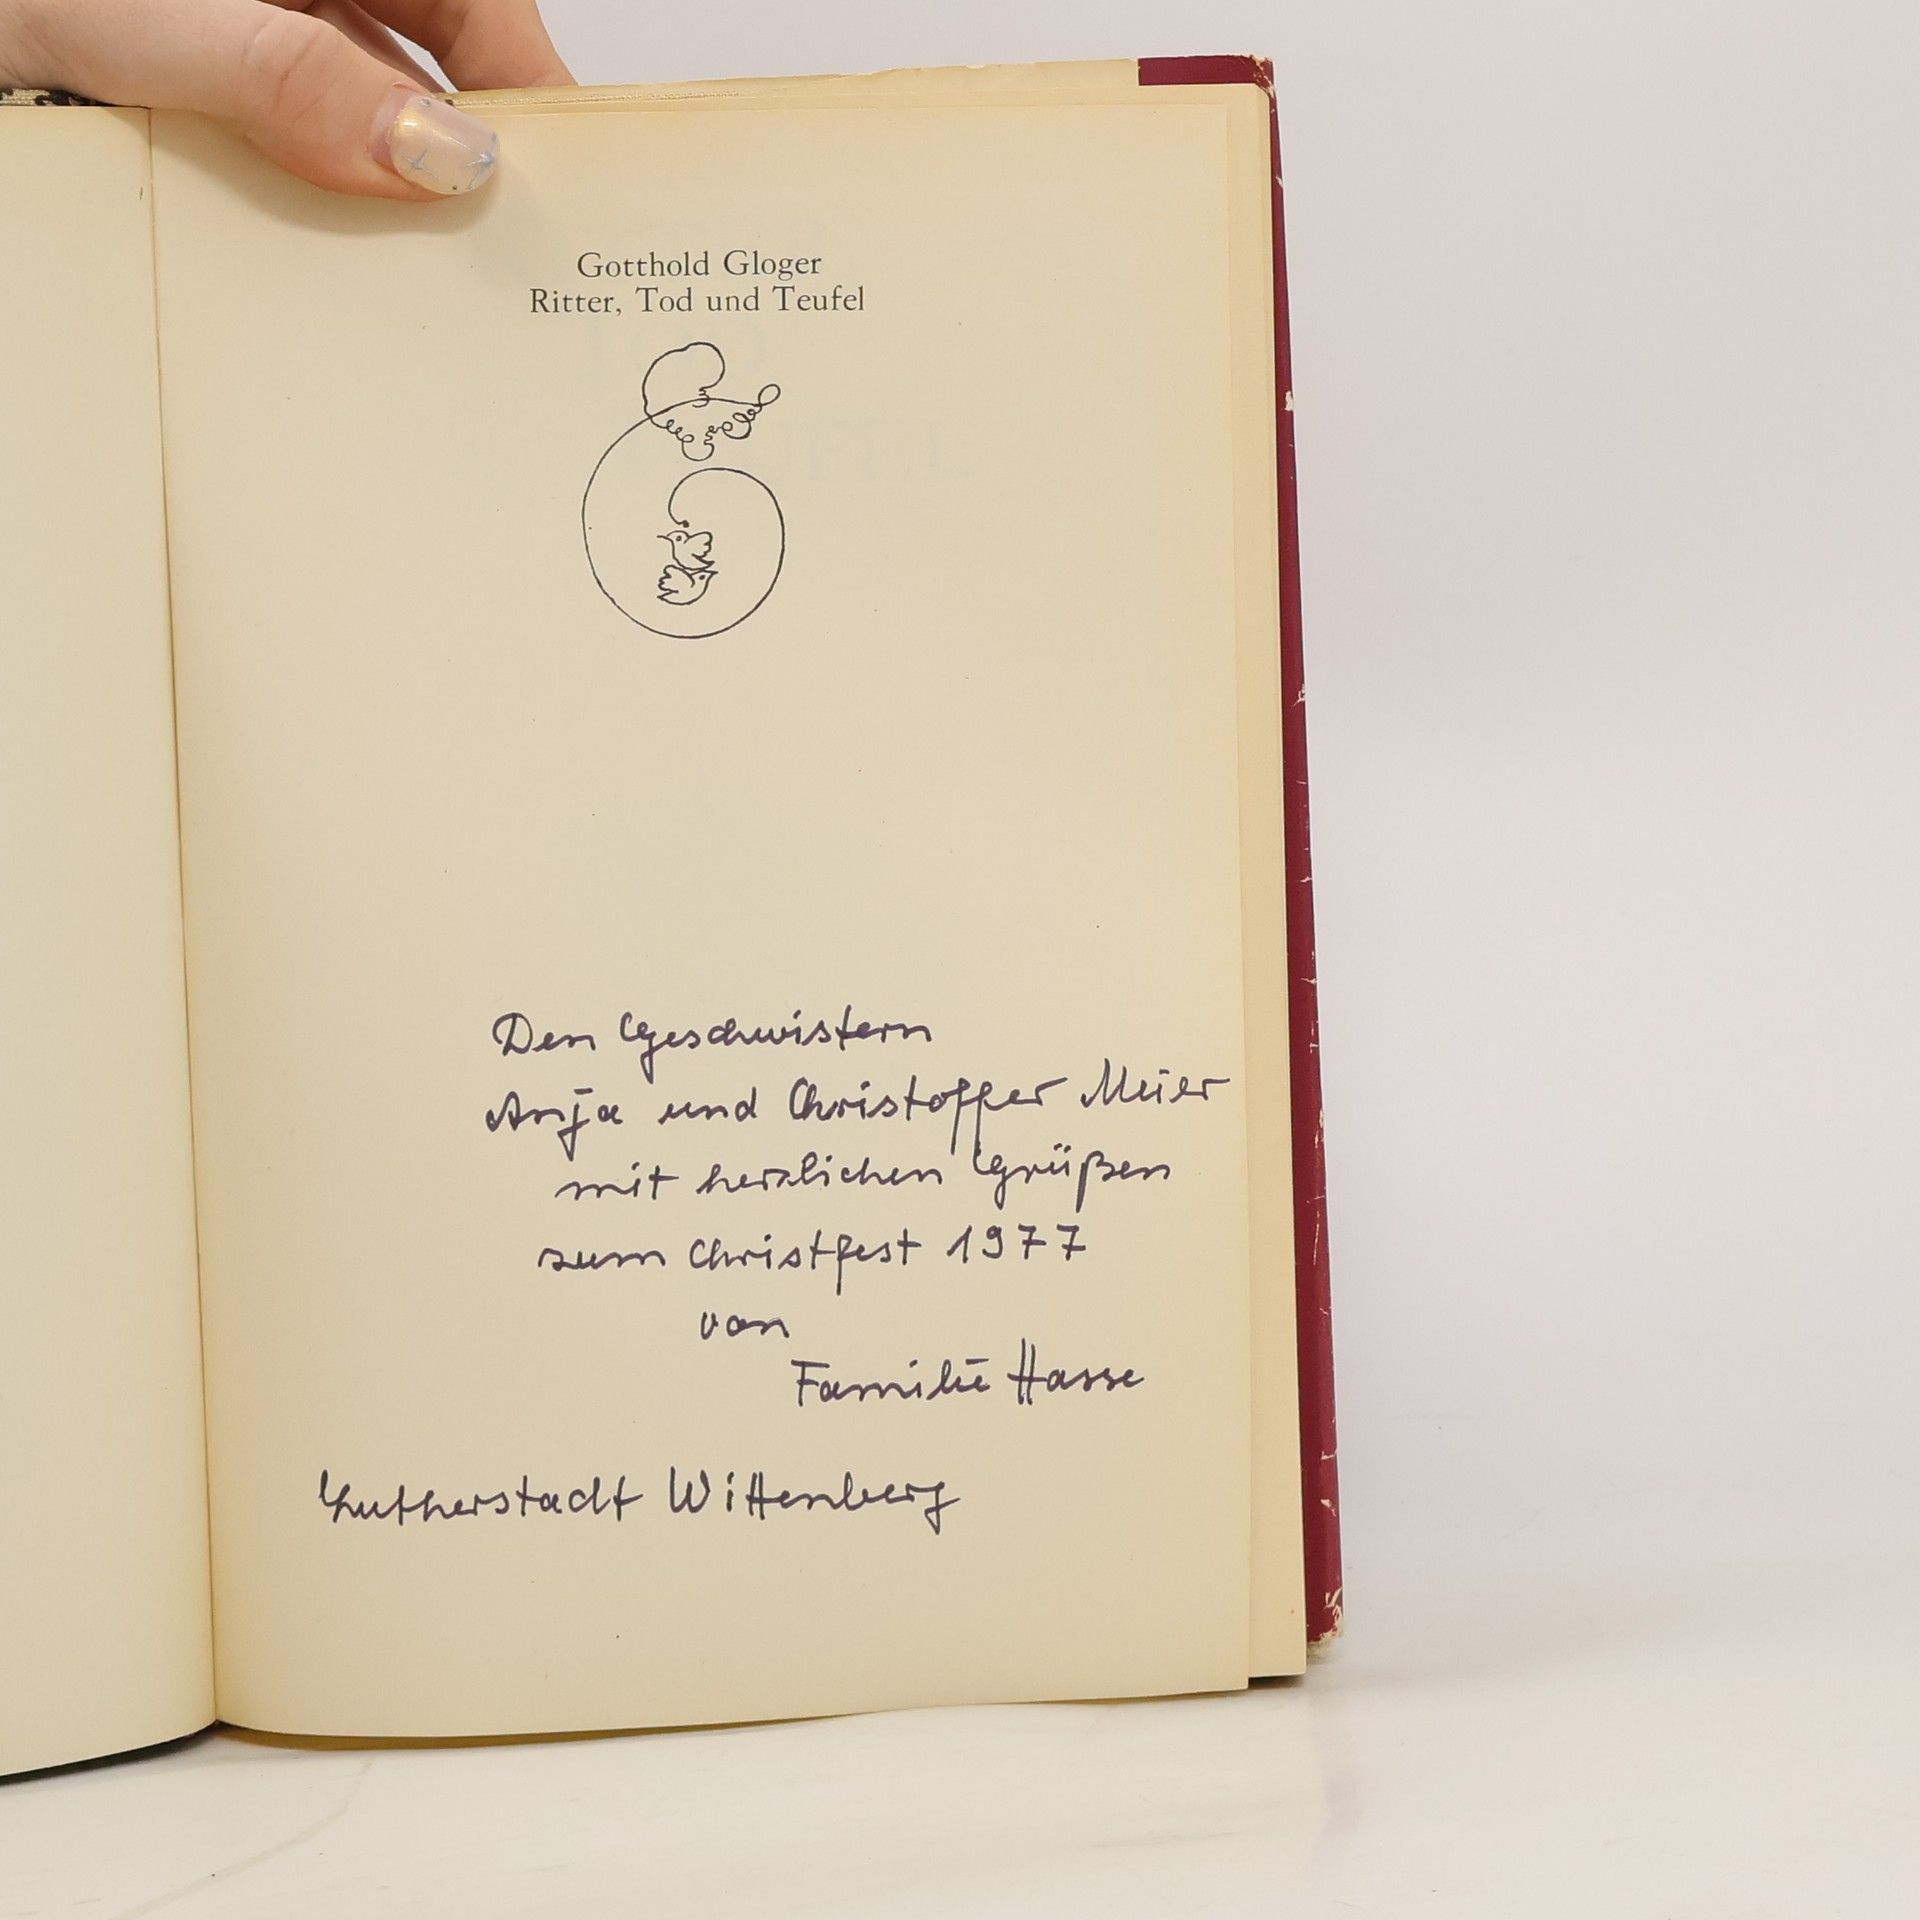 Gotthold Gloger
Ritter, Tod und Teufel
Den Geschwistern
Anja und Christoffer Meier
mit herzlichen Grüßen
zum Christfest 1977
von
Familie Hasse
Lutherstadt Wittenberg